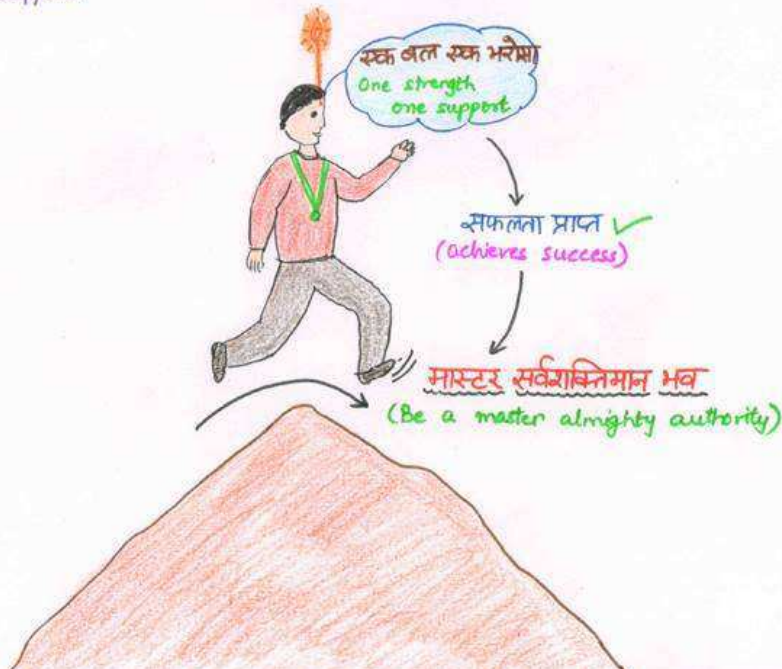 एक बल एक भरोसा
One strength
one support
सफलता प्राप्त ✓
(achieves success)
मास्टर सर्वशक्तिमान भव
(Be a master almighty authority)